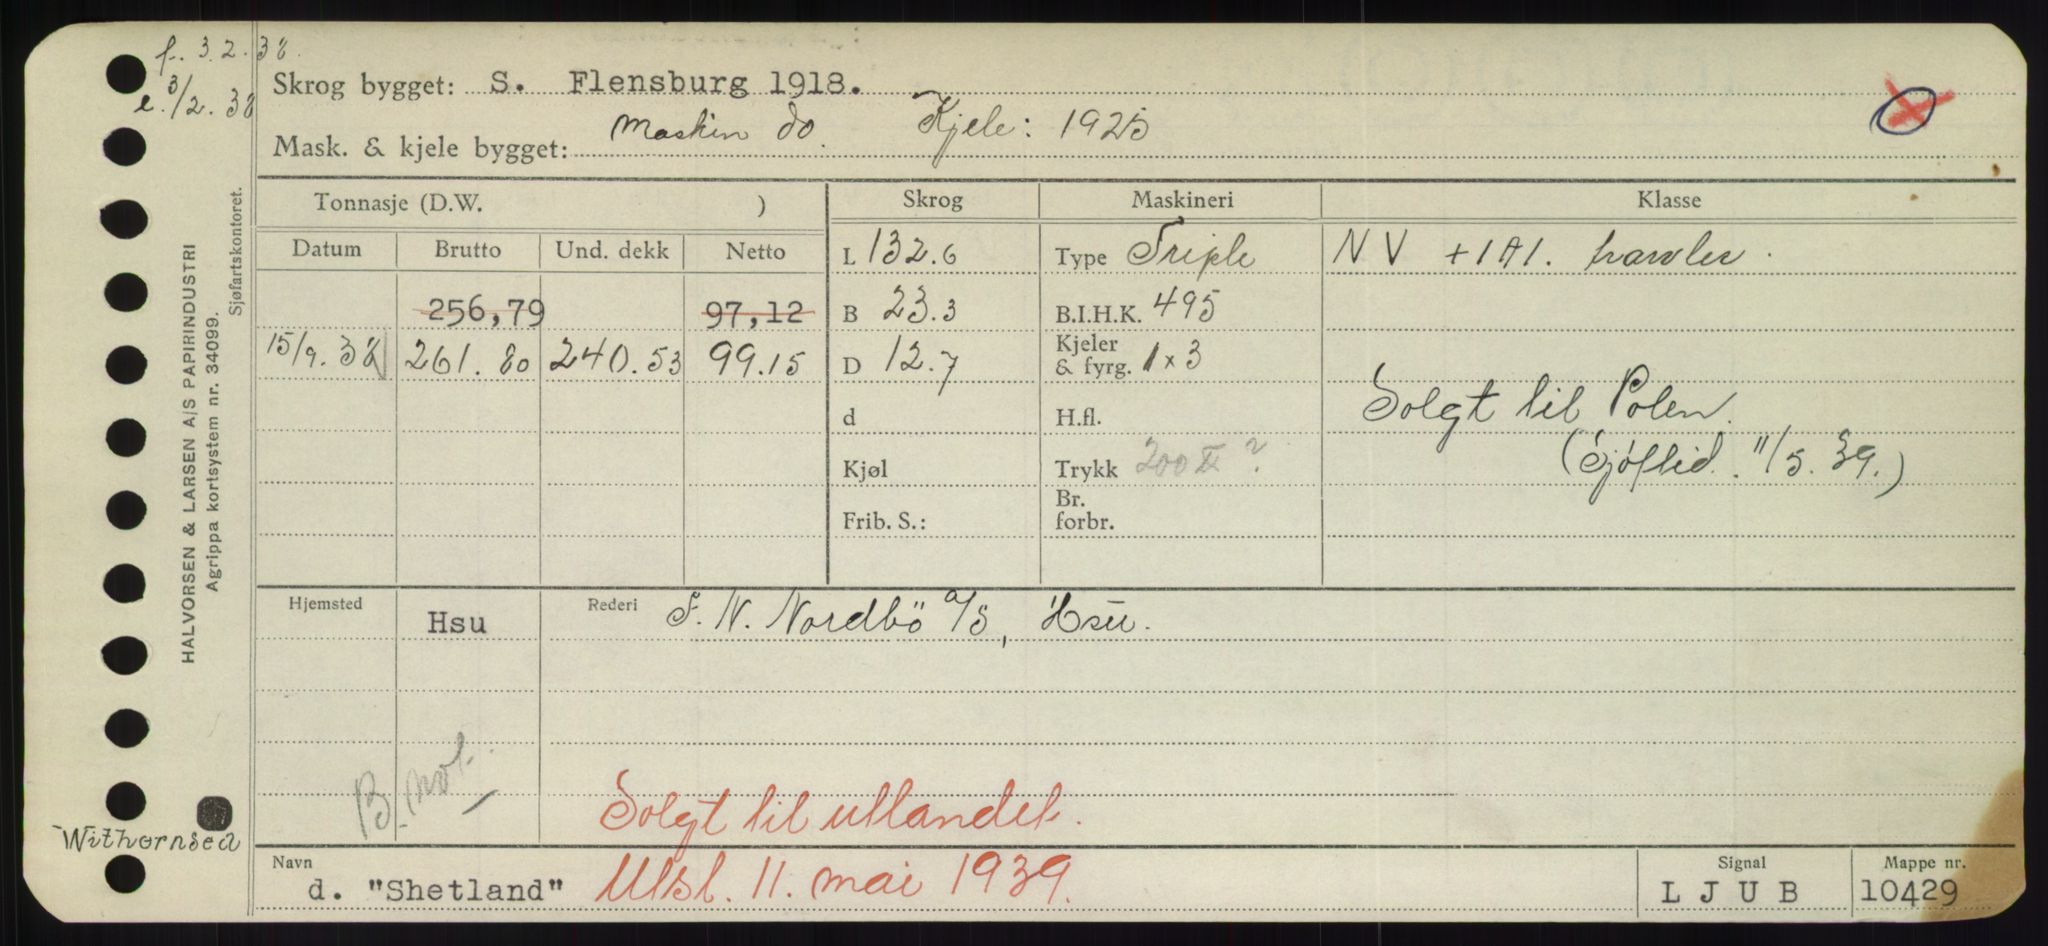 f. 3.2.38.
e. 3/2.38
Skrog bygget: S. Flensburg 1918.
Mask. & kjele bygget: Maskin do. Kjele: 1925
HALVORSEN & LARSEN A/S PAPIRINDUSTRI
Agrippa kortsystem nr. 34099.
Sjøfartskontoret.
Tonnasje (D.W. ) Skrog Maskineri Klasse
Datum Brutto Und. dekk Netto L 132.6 Type Triple NV +1A1. trawler.
256,79 97,12 B 23.3 B.I.H.K. 495
15/9.38 261.80 240.53 99.15 D 12.7 Kjeler & fyrg. 1x3
d H.fl. Solgt til Polen.
Kjøl Trykk 200 ? (Sjøftid. 11/5.39.)
Frib. S.: Br. forbr.
Hjemsted Hsu Rederi F. N. Nordbö A/S, Hsu.
B. not.
Solgt til utlandet.
Withernsea
Navn d. "Shetland" Utsl. 11. mai 1939. Signal LJUB Mappe nr. 10429